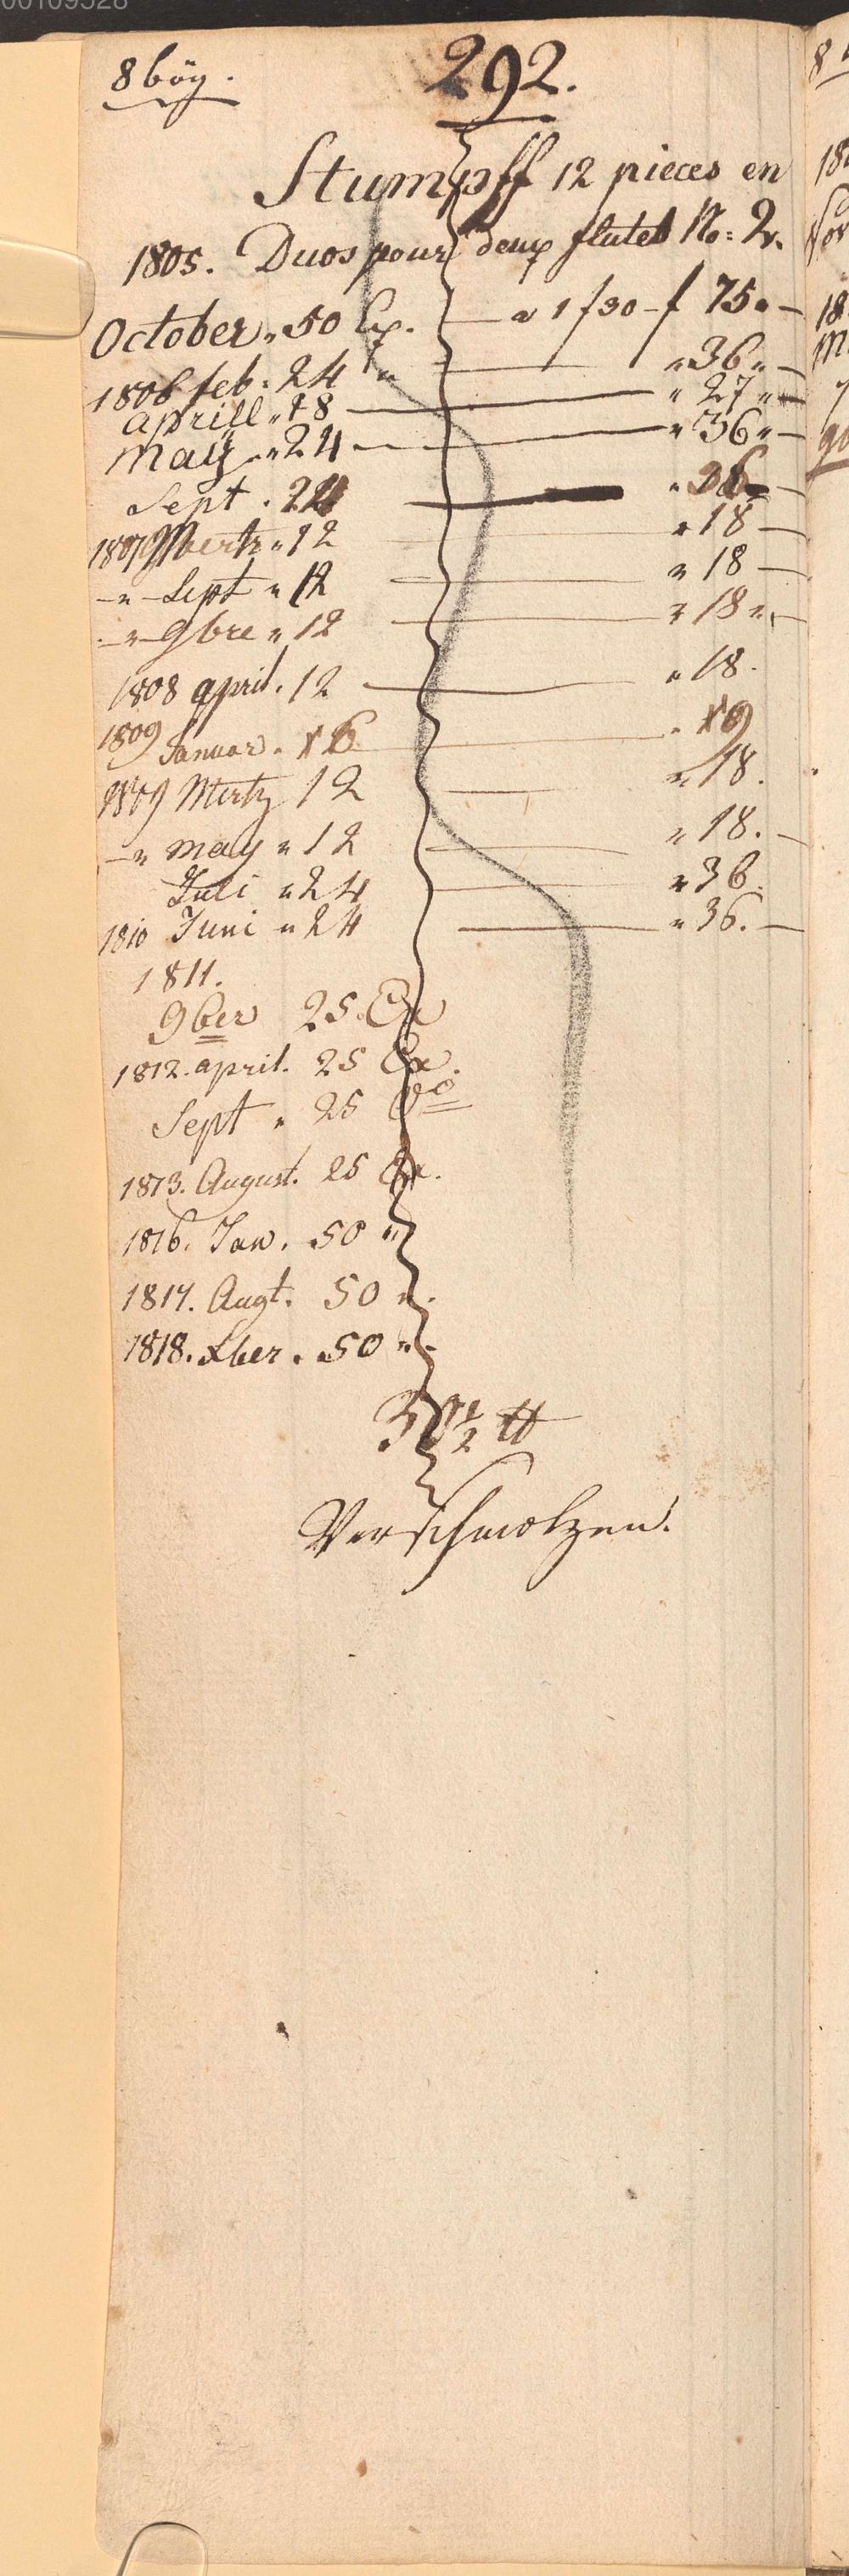 00109528
8 bög.
292.
Stumpff 12 pieces en
1805. Duos pour deux flutes No: 2.
October. „ 50 Ex. — a 1 f 30 – f 75 „ —
1806 feb. 24 „ — „ 36 „ —
aprill „ 18 — „ 27 „ —
may „ 24 — „ 36 „ —
Sept. 24 — „ 36 —
1807 Mertz „ 12 — „ 18 —
— „ — Sept „ 12 — „ 18 —
— „ — 9bre „ 12 — „ 18 „ —
1808 april. 12 — „ 18.
1809 Januar. 6 — „ 9
1809 Mertz 12 — „ 18.
— „ may „ 12 — „ 18. —
Juli „ 24 — „ 36.
1810 Juni „ 24 — „ 36. —
1811.
9ber 25. Ex
1812. april. 25 Ex.
Sept „ 25 do
1813. August. 25 Ex.
1816. Jan. 50 „
1817. Augt. 50 „.
1818. Xber. 50 „
½ ℔
Verschmolzen.